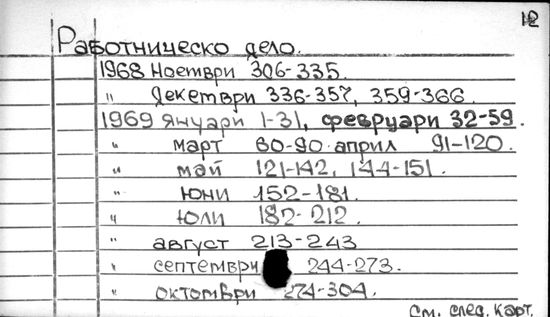 12
Работническо дело.
1968 Ноември 306-335.
" Декември 336-357, 359-366.
1969 Януари 1-31, февруари 32-59.
" март 60-90 април 91-120.
" май 121-142, 144-151.
" юни 152-181.
" юли 182-212.
" август 213-243
" септември 244-273.
" октомври 274-304.
См. след. карт.